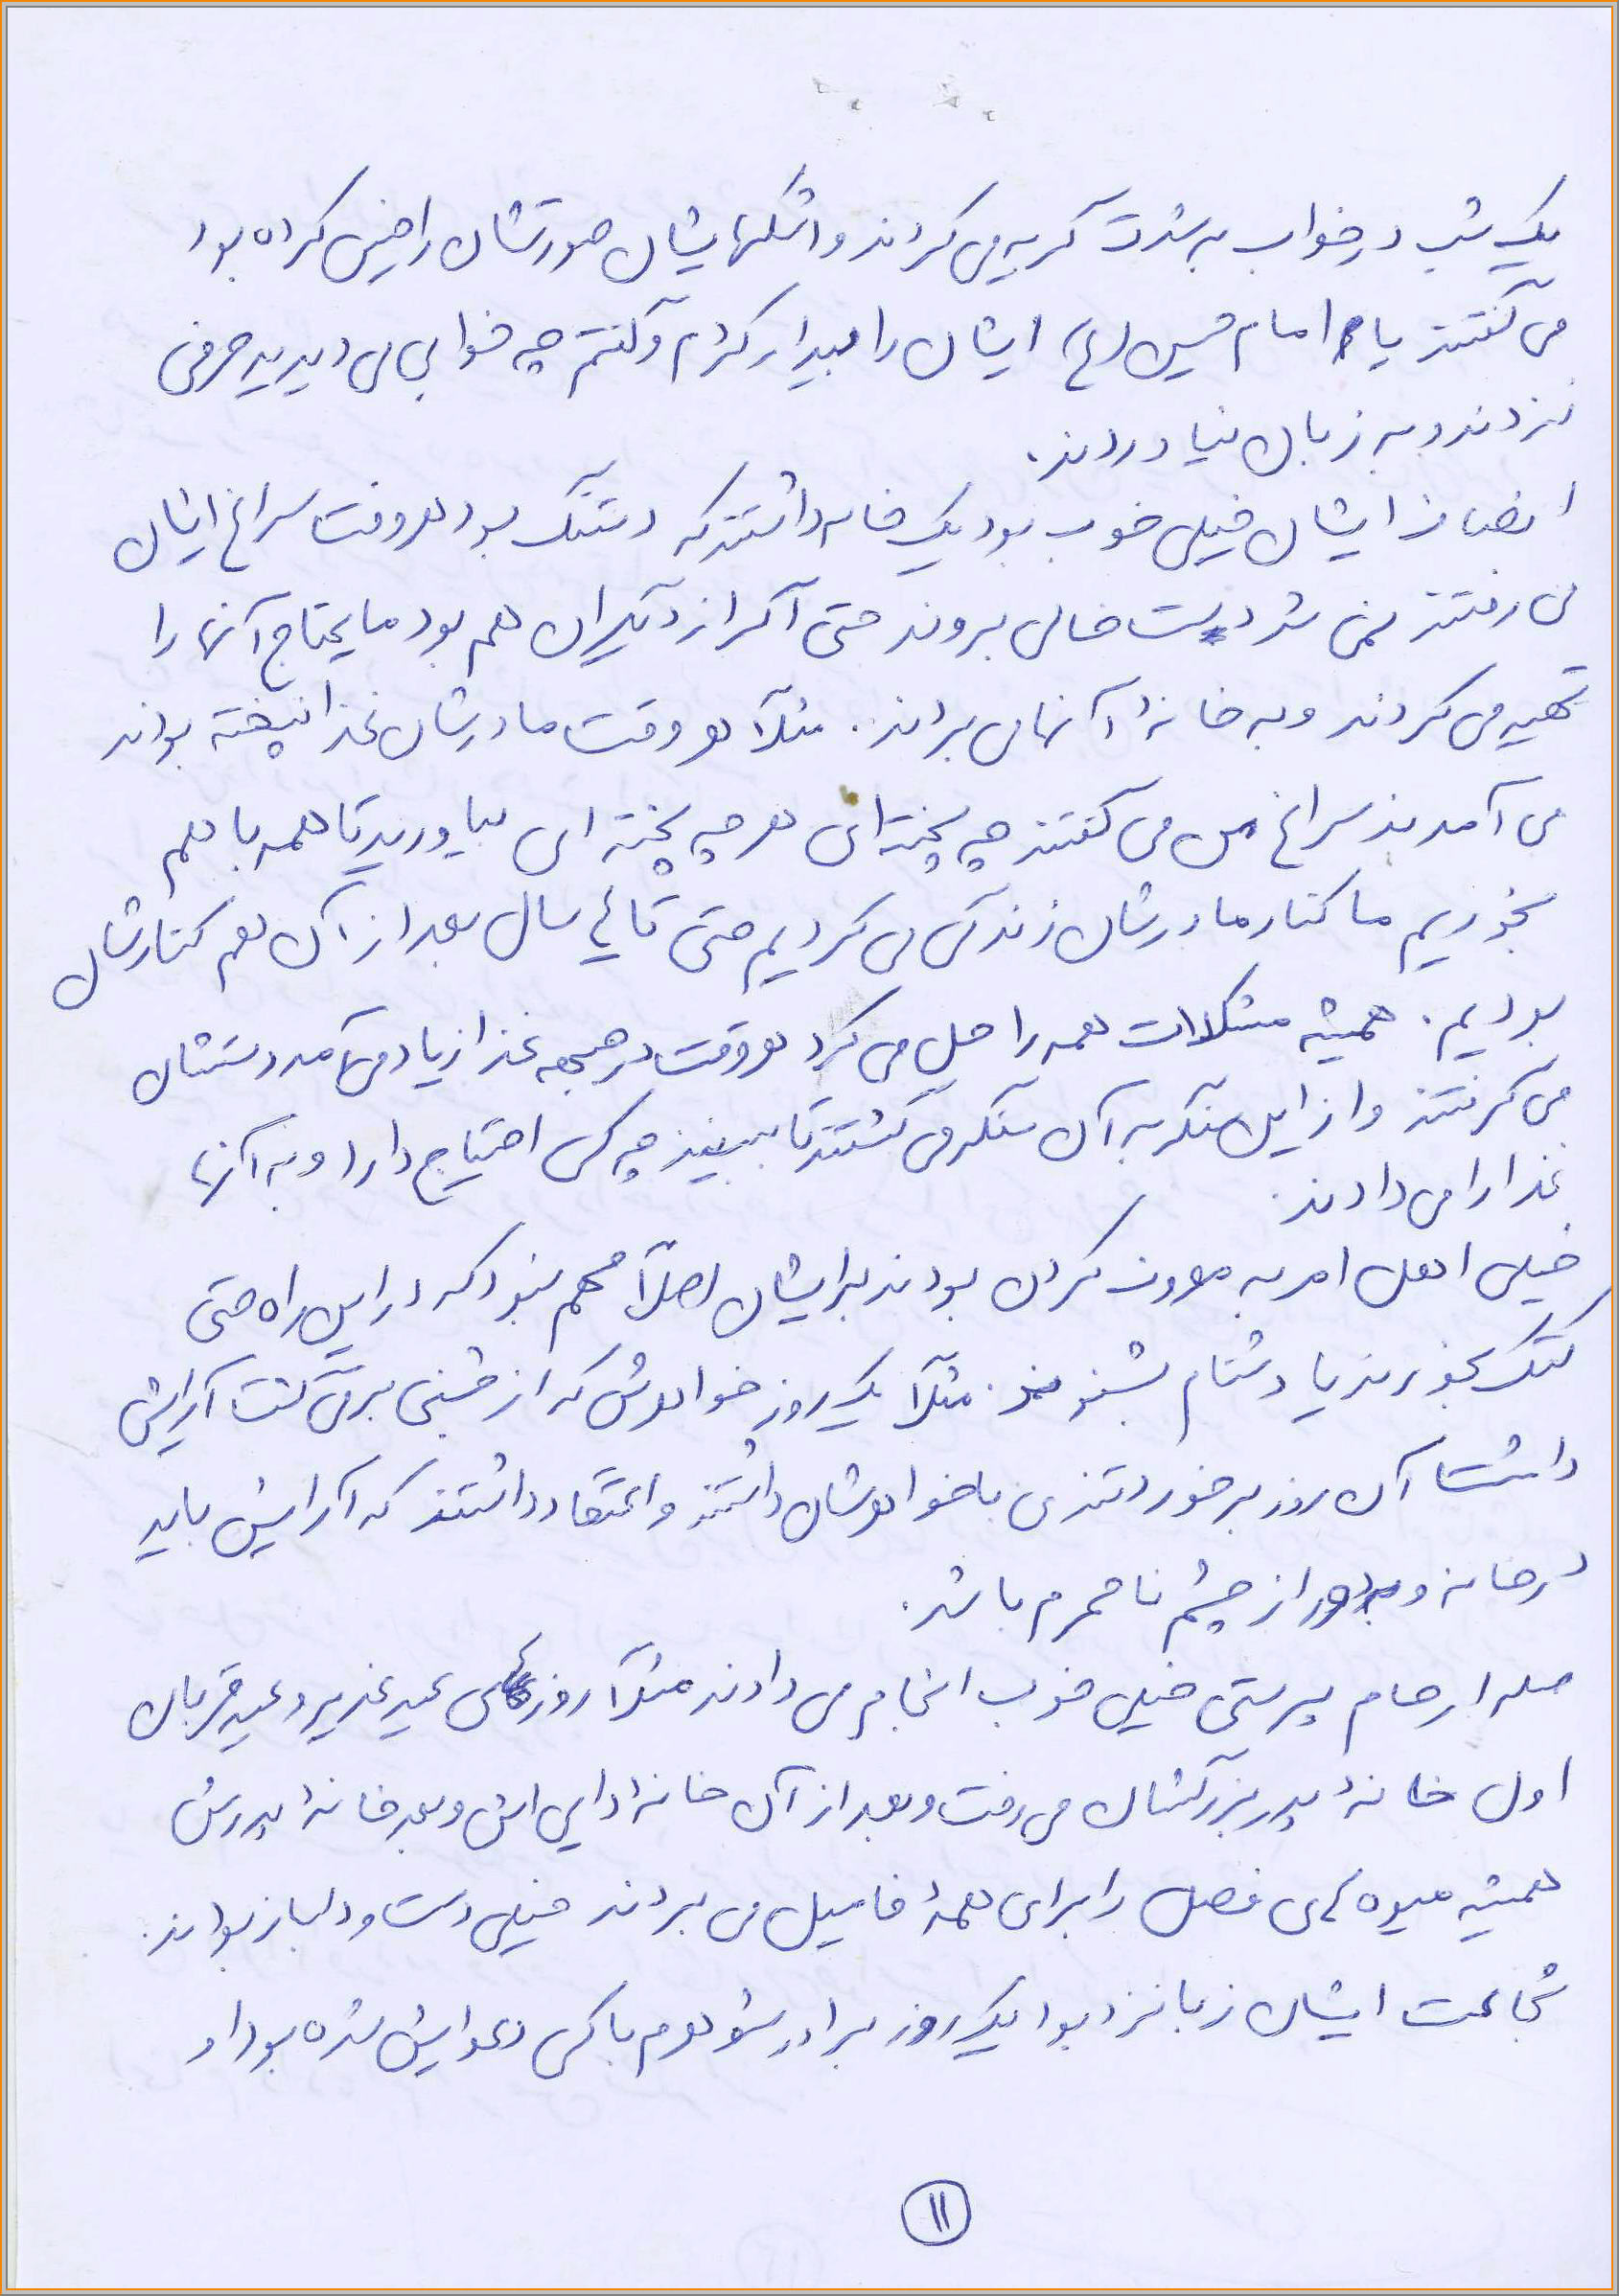 یک شب در خواب به شدت گریه می کردند و اشکهایشان صورتشان را خیس کرده بود
می گفتند یا امام حسین (ع) ایشان را بیدار کردم و گفتم چه خوابی می دیدید حرفی
نزدند و به زبان نیاوردند.
انصاف ایشان خیلی خوب بود یک خاله داشتند که دستتنگ بود هر وقت سراغ ایشان
می رفتند نمی شد دست خالی بروند حتی اگر از دیگران هم بود مایحتاج آنها را
تهیه می کردند و به خانۀ آنها می بردند. مثلاً هر وقت مادرشان غذا نپخته بودند
می آمدند سراغ من می گفتند چه پخته ای هر چه پخته ای بیاورید تا همه با هم
بخوریم ما کنار مادرشان زندگی می کردیم حتی تا ۴ سال بعد از آن هم کنارشان
بودیم. همیشه مشکلات همه را حل می کرد هر وقت در جبهه غذا زیاد می آمد دستشان
می گرفتند و از این سنگر به آن سنگر می گشتند تا ببینند چه کسی احتیاج دارد و به آنها
غذا را می دادند.
خیلی اهل امر به معروف کردن بودند برایشان اصلاً مهم نبود که در این راه حتی
کتک بخورند یا دشنام بشنوند. مثلاً یک روز خواهرش که از جشنی برمی گشت آرایش
داشت آن روز برخورد تندی با خواهرشان داشتند و اعتقاد داشتند که آرایش باید
در خانه و بدور از چشم نامحرم باشد.
صله ارحام پرستی خیلی خوب انجام می دادند مثلاً روزهای عید غدیر و عید قربان
اول خانۀ پدربزرگشان می رفت و بعد از آن خانۀ دایی اش و بعد خانۀ پدرش
همیشه میوه های فصل را برای همۀ فامیل می بردند خیلی دست و دلباز بودند.
شجاعت ایشان زبانزد بود یک روز برادر شوهرم با کسی دعوایش شده بود او
۱۱